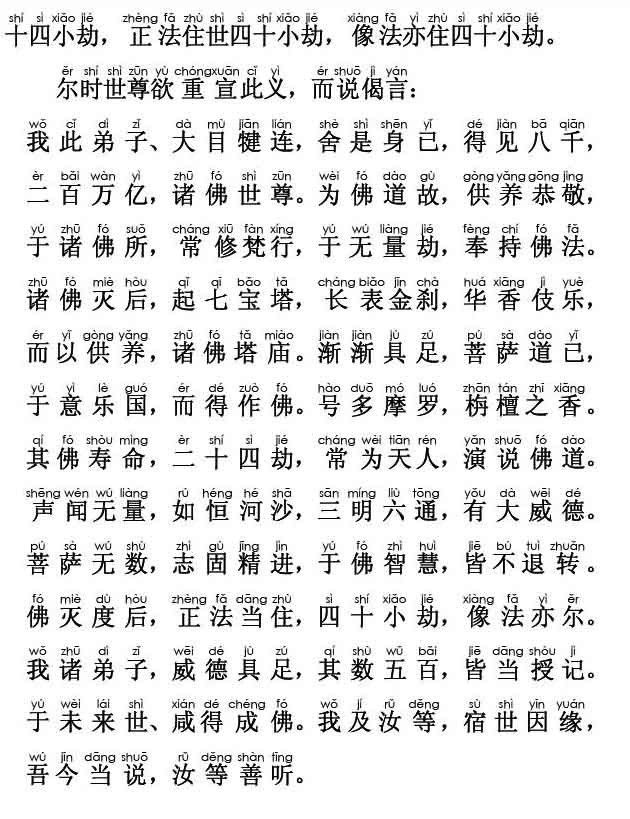 shí sì xiǎo jié zhèng fǎ zhù shì sì shí xiǎo jié xiàng fǎ yì zhù sì shí xiǎo jié
十四小劫，正法住世四十小劫，像法亦住四十小劫。
ěr shí shì zūn yù chóng xuān cǐ yì ér shuō jì yán
尔时世尊欲重宣此义，而说偈言：
wǒ cǐ dì zǐ dà mù jiān lián shě shì shēn yǐ dé jiàn bā qiān
我此弟子、大目犍连，舍是身已，得见八千，
èr bǎi wàn yì zhū fó shì zūn wèi fó dào gù gòng yǎng gōng jìng
二百万亿，诸佛世尊。为佛道故，供养恭敬，
yú zhū fó suǒ cháng xiū fàn xíng yú wú liàng jié fèng chí fó fǎ
于诸佛所，常修梵行，于无量劫，奉持佛法。
zhū fó miè hòu qǐ qī bǎo tǎ cháng biǎo jīn chà huá xiāng jì yuè
诸佛灭后，起七宝塔，长表金刹，华香伎乐，
ér yǐ gòng yǎng zhū fó tǎ miào jiàn jiàn jù zú pú sà dào yǐ
而以供养，诸佛塔庙。渐渐具足，菩萨道已，
yú yì lè guó ér dé zuò fó hào duō mó luó zhān tán zhī xiāng
于意乐国，而得作佛。号多摩罗，栴檀之香。
qí fó shòu mìng èr shí sì jié cháng wèi tiān rén yǎn shuō fó dào
其佛寿命，二十四劫，常为天人，演说佛道。
shēng wén wú liàng rú héng hé shā sān míng liù tōng yǒu dà wēi dé
声闻无量，如恒河沙，三明六通，有大威德。
pú sà wú shù zhì gù jīng jìn yú fó zhì huì jiē bú tuì zhuǎn
菩萨无数，志固精进，于佛智慧，皆不退转。
fó miè dù hòu zhèng fǎ dāng zhù sì shí xiǎo jié xiàng fǎ yì ěr
佛灭度后，正法当住，四十小劫，像法亦尔。
wǒ zhū dì zǐ wēi dé jù zú qí shù wǔ bǎi jiē dāng shòu jì
我诸弟子，威德具足，其数五百，皆当授记。
yú wèi lái shì xián dé chéng fó wǒ jí rǔ děng sù shì yīn yuán
于未来世、咸得成佛。我及汝等，宿世因缘，
wú jīn dāng shuō rǔ děng shàn tīng
吾今当说，汝等善听。